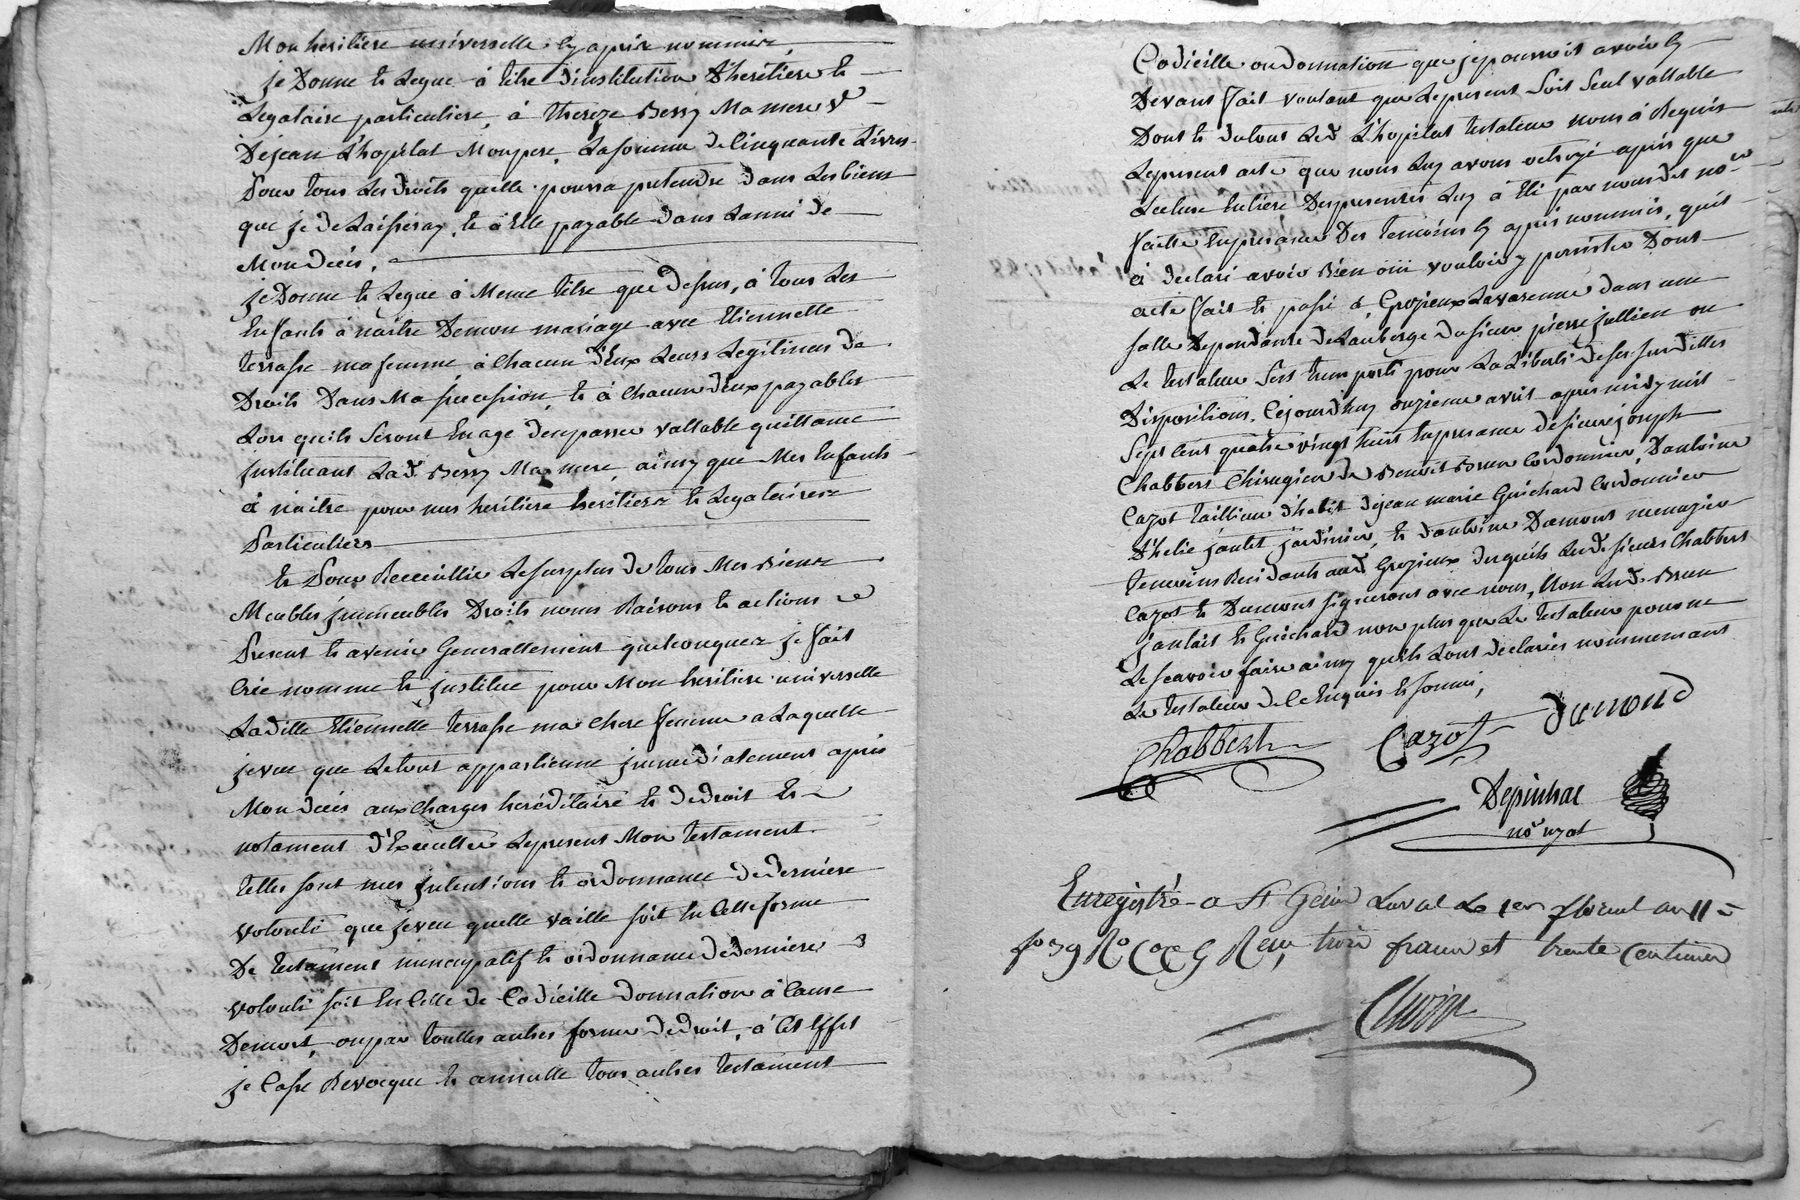 Mon heritiere universelle cy apres nommée,
je Donne et Legue à titre d'institution d'heretiere et
Legataire particuliere, à thereze Bessy Ma mere Ve
De jean L'hopital Mon pere, La somme de Cinquante Livres
Pour tous Les droits quelle pourra pretendre dans Les biens
que je de Laisseray, et à Elle payable dans Lanné de
Mon deces.
je Donne et Legue à Meme titre que dessus, à tous Les
Enfants à naitre De mon mariage avec Etiennette
terrasse ma femme à chacun d'Eux Leurs Legitimes de
Droits Dans Ma succession, et à chacun d'eux payables
Lors quils seront En age d'en passer vallable quittance
jnstituant Lad. Bessy Ma mere ainsy que Mes Enfants
à naitre pour mes heritiere heritiers et Legataires
Particuliers
Et Pour Recceuillir Le surplus de tous Mes Biens
Meubles jmmeubles Droits noms Raisons et actions
Present et avenir Generallement quelconques je fait
Crée nomme et jnstitue pour Mon heritiere universelle
Laditte Etiennette terrasse ma chere femme a Laquelle
je veu que Le tout appartienne jmmediatement apres
Mon deces aux charges hereditaire et de droit Et
notament d'Executter Le present Mon testament.
telles sont mes jntentions et ordonnance de derniere
volonté que je veu quelle vaille soit En Cette forme
De testament nuncupatif et ordonnance de derniere
volonté soit En Celle de Codicille donnation à Cause
De mort, ou par touttes autres forme de droit, à Cet Effet
je Casse Revocque et annulle tous autres testament
Codicille ou donnation que je pourrois avoir cy
Devant fait voulant que Le present soit seul vallable
Dont et du tout Led. L'hopital testateur nous à Requis
Le present acte que nous Luy avons octroyé apres que
Lecture Entiere Des presentes Luy à Eté par nous dit nore
faitte En presence Des temoins cy apres nommés, quil
à declaré avoir Bien oüi vouloir y persister Dont
acte fait et passé à Grezieux Lavarenne dans une
salle Dependante de Lauberge du sieur pierre jullien ou
Le testateur sest transporté pour La Liberté de ses susdittes
Dispositions, Cejourdhuy onzieme avril apres midy mil
sept Cent quatre vingt huit En presence de sieur joseph
Chabbert Chirugien de Benoit Brun Cordonnier, D'antoine
Cazot tailleur d'habit de jean marie Guichard Cordonnier
D'helie jantet jardinier, et d'antoine Dumont menuzier
temoins Residants aud. Grezieux desquels Lesd. sieurs Chabbert
Cazot et Dumont signeront avec nous, Non Lesd. Brun
jantet et Guichard non plus que Le testateur pour ne
Le scavoir faire ainsy quils Lont declarés nommement
Le testateur de Ce Enquis Et sommé,
Chabbert Cazot dumond
Depinhac
nore royal
Enregistré a St Genis Laval Le 1er floreal an 11
fo 79 Ro Reçu trois francs et trente Centimes